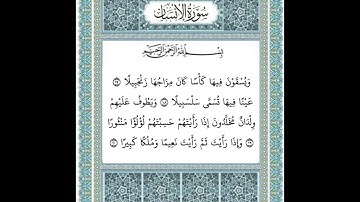 سُورَةُ الْإِنْسَانِ
بِسْمِ اللَّهِ الرَّحْمَٰنِ الرَّحِيمِ
وَيُسْقَوْنَ فِيهَا كَأْسًا كَانَ مِزَاجُهَا زَنجَبِيلًا ﴿١٧﴾
عَيْنًا فِيهَا تُسَمَّىٰ سَلْسَبِيلًا ﴿١٨﴾ وَيَطُوفُ عَلَيْهِمْ
وِلْدَانٌ مُّخَلَّدُونَ إِذَا رَأَيْتَهُمْ حَسِبْتَهُمْ لُؤْلُؤًا مَّنثُورًا
﴿١٩﴾ وَإِذَا رَأَيْتَ ثَمَّ رَأَيْتَ نَعِيمًا وَمُلْكًا كَبِيرًا ﴿٢٠﴾